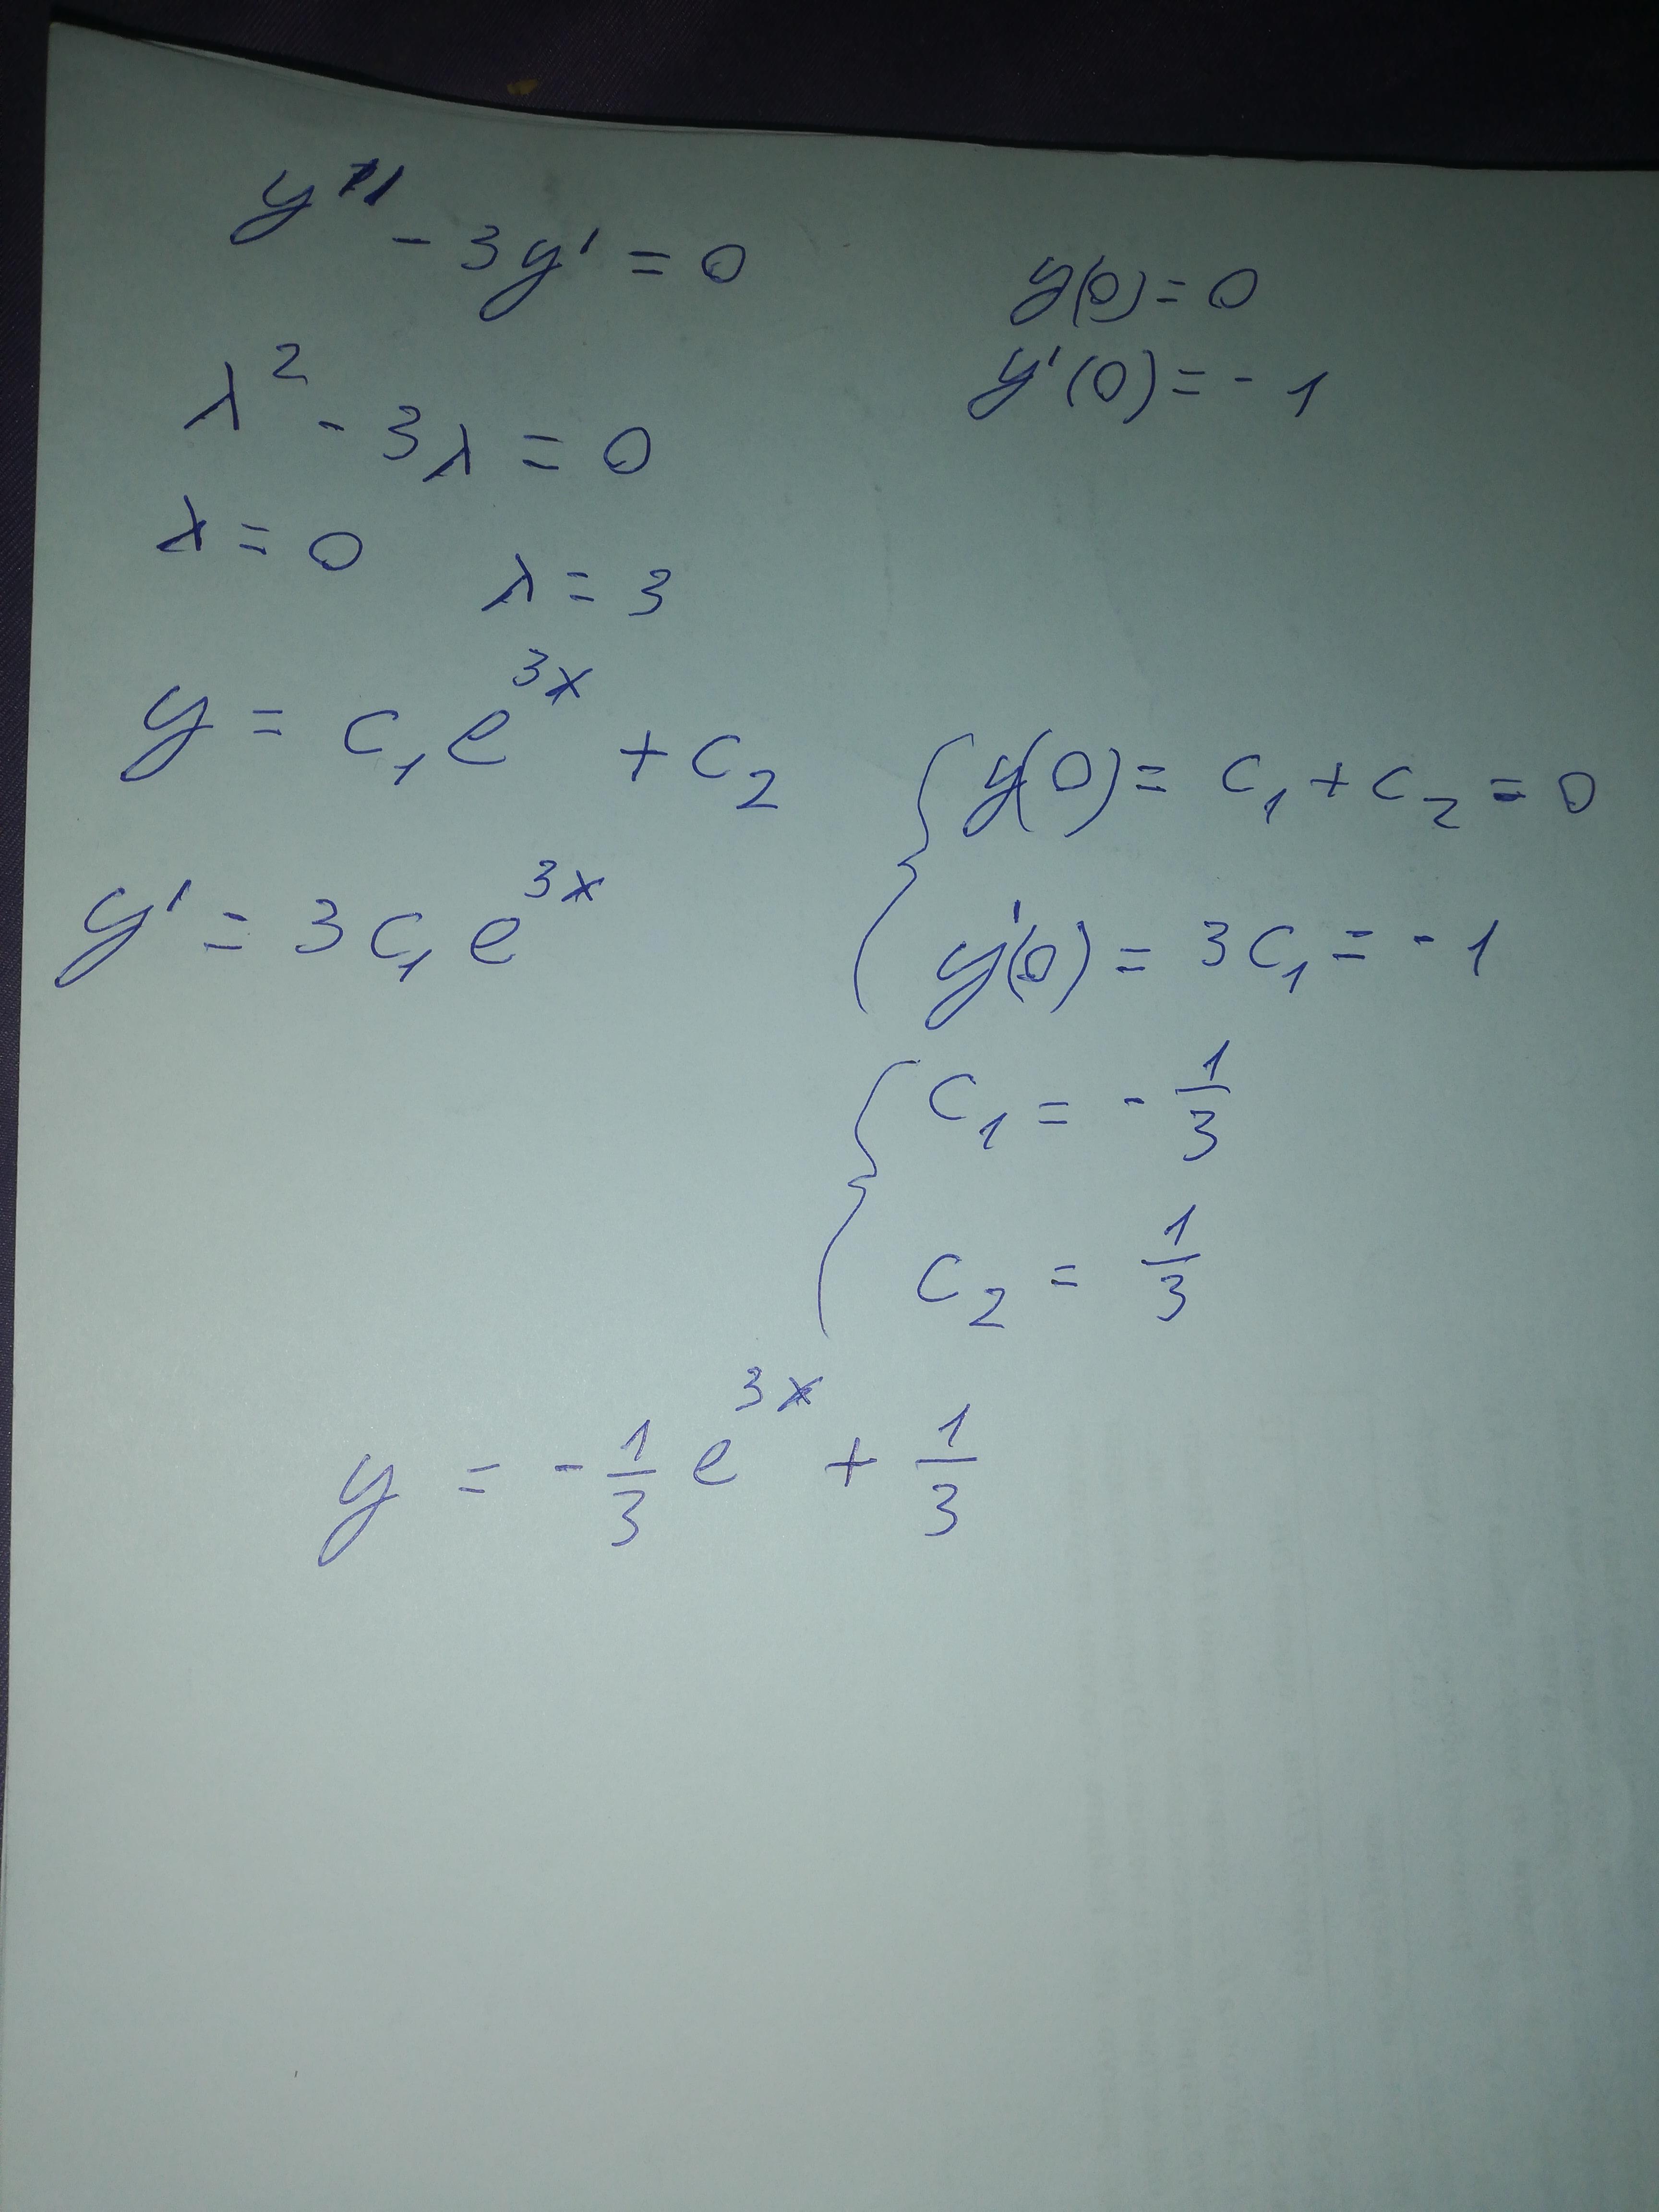 y'' - 3y' = 0
y(0) = 0
y'(0) = - 1
λ² - 3λ = 0
λ = 0 λ = 3
y = c₁e³ˣ + c₂
{ y(0) = c₁ + c₂ = 0
y' = 3c₁e³ˣ
y'(0) = 3c₁ = - 1
{ c₁ = - 1/3
c₂ = 1/3
y = - 1/3 e³ˣ + 1/3